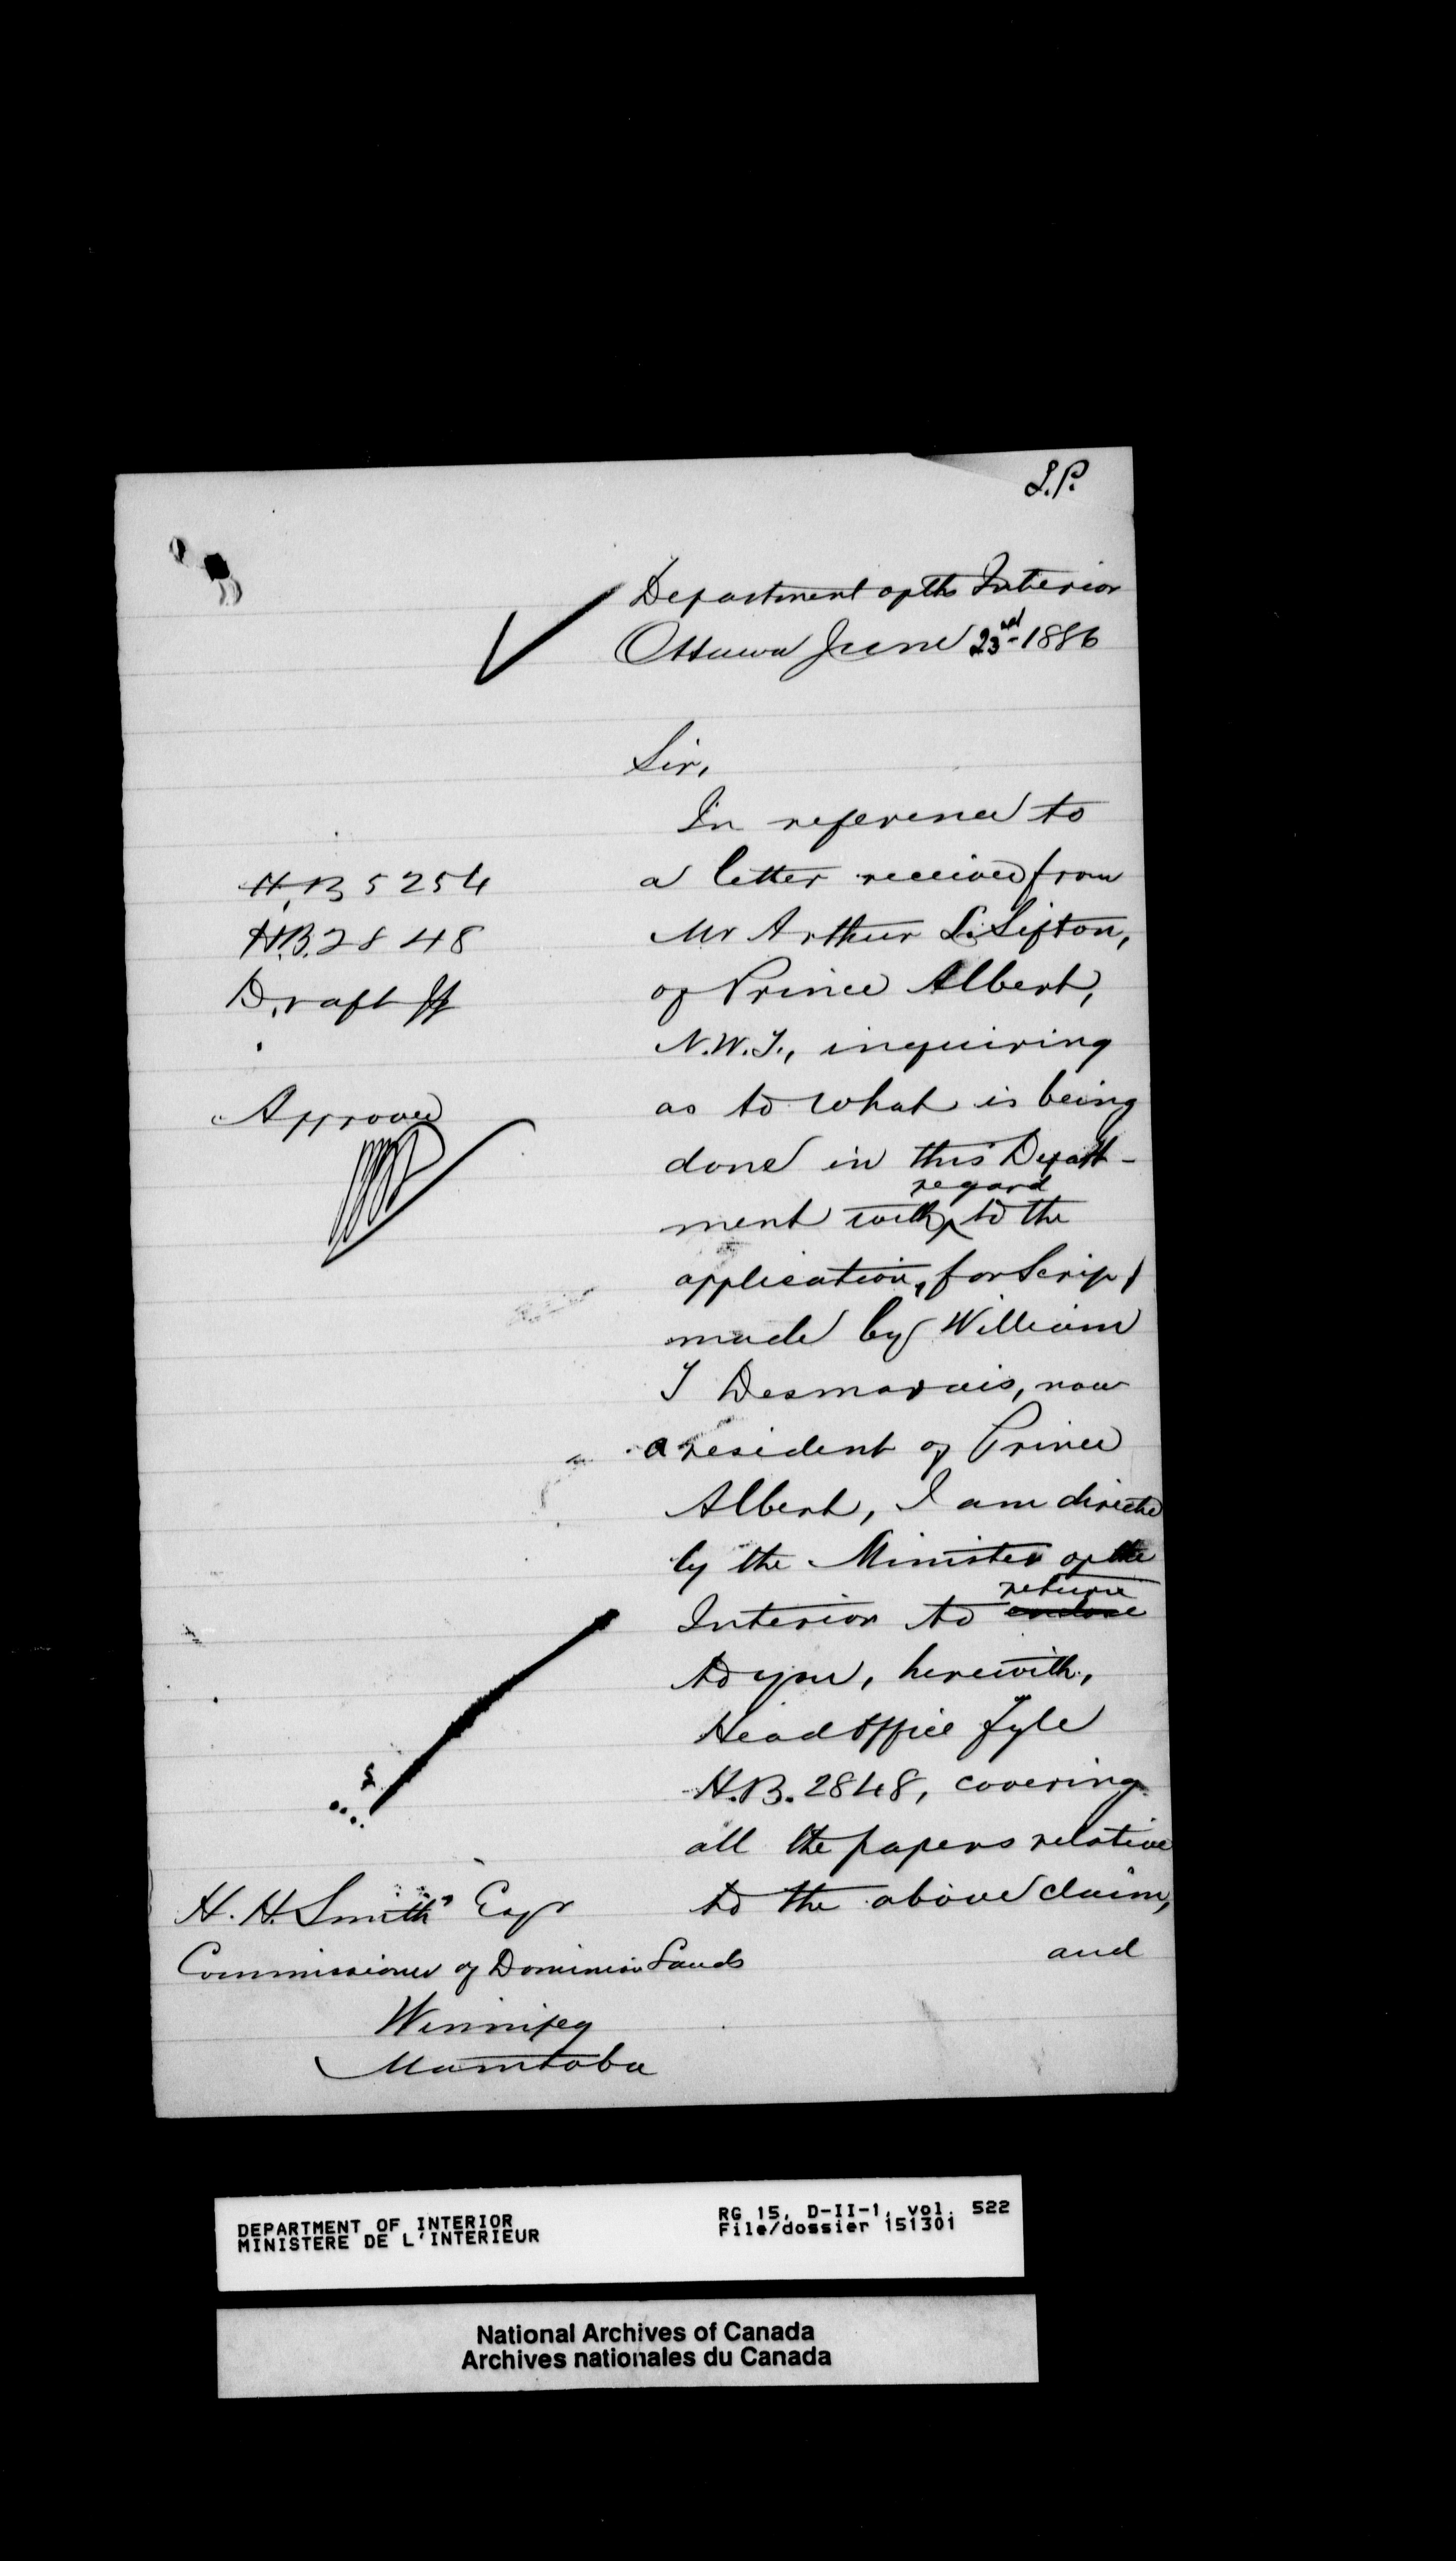 L.P.
Department of the Interior
Ottawa June 23rd 1886
Sir,
In reference to
a letter received from
Mr Arthur L. Sifton,
of Prince Albert,
N.W.T., inquiring
as to what is being
done in this Depart-
regard
ment with to the
application, for Scrip,
made by William
T Desmarais, now
a resident of Prince
Albert, I am directed
by the Minister of the
return
Interior to enclose
to you, herewith,
Head Office fyle
H.B. 2848, covering
all the papers relative
to the above claim,
and
H.B 5254
H.B. 2848
Draft
Approved
H. H. Smith Esqr
Commissioner of Dominion Lands
Winnipeg
Manitoba
DEPARTMENT OF INTERIOR
MINISTERE DE L'INTERIEUR
RG 15, D-II-1, vol. 522
File/dossier 151301
National Archives of Canada
Archives nationales du Canada